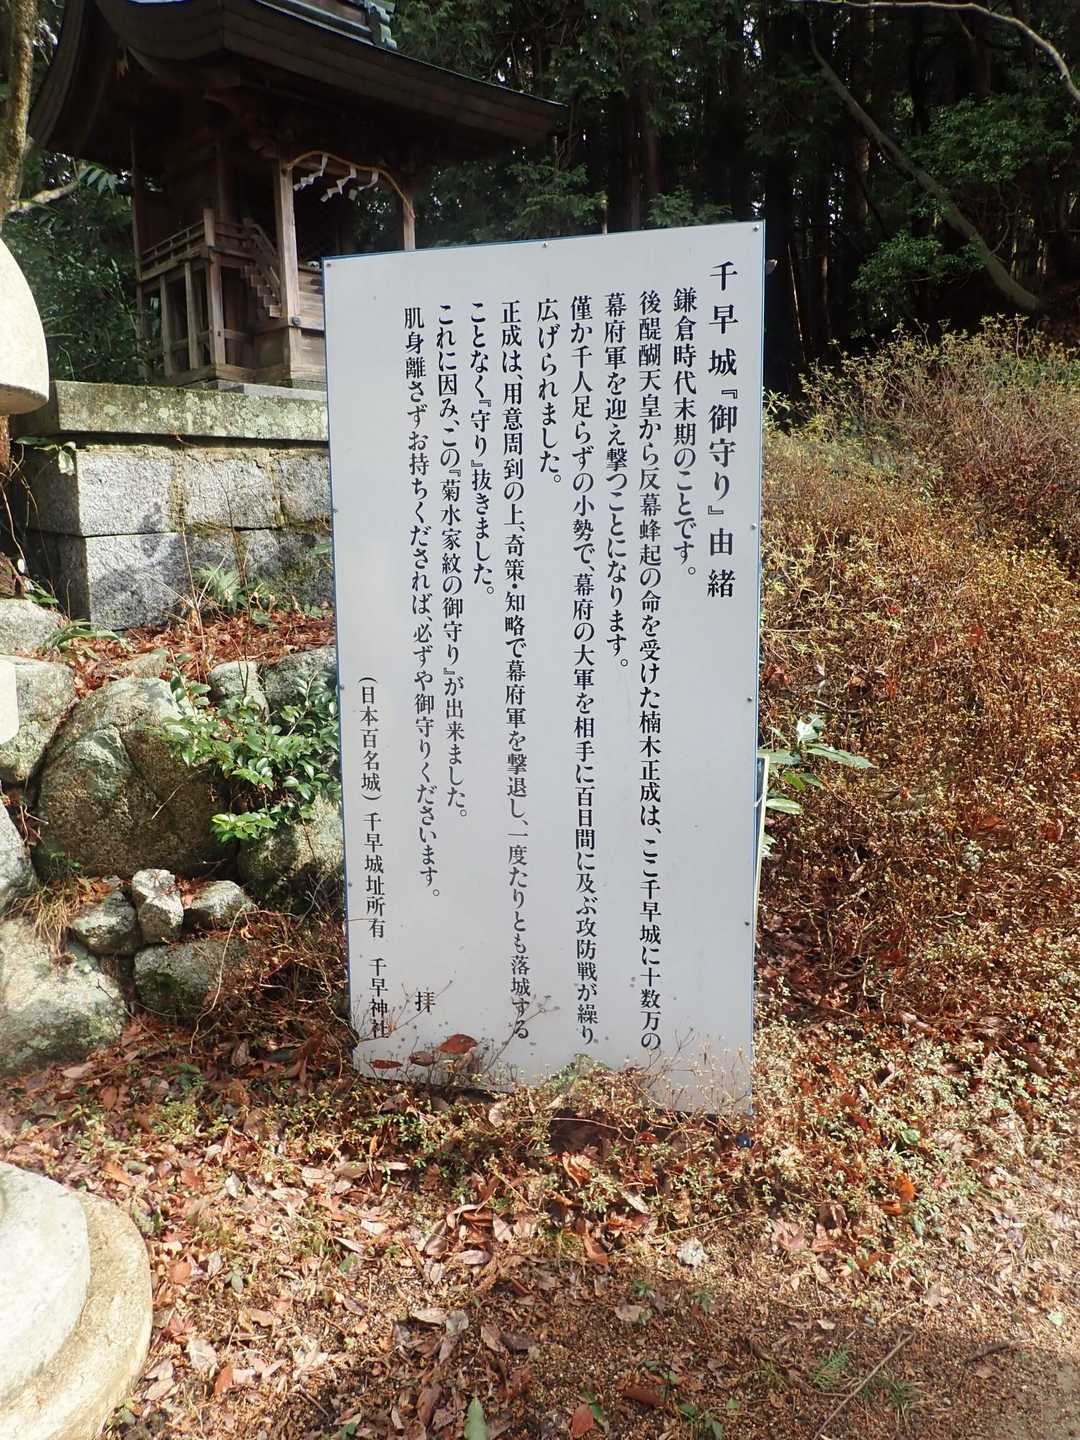 千早城『御守り』由緒
鎌倉時代末期のことです。
後醍醐天皇から反幕蜂起の命を受けた楠木正成は、ここ千早城に十数万の
幕府軍を迎え撃つことになります。
僅か千人足らずの小勢で、幕府の大軍を相手に百日間に及ぶ攻防戦が繰り
広げられました。
正成は、用意周到の上、奇策・知略で幕府軍を撃退し、一度たりとも落城する
ことなく『守り』抜きました。
これに因み、この『菊水家紋の御守り』が出来ました。
肌身離さずお持ちくだされば、必ずや御守りくださいます。
拝
（日本百名城）千早城址所有　千早神社